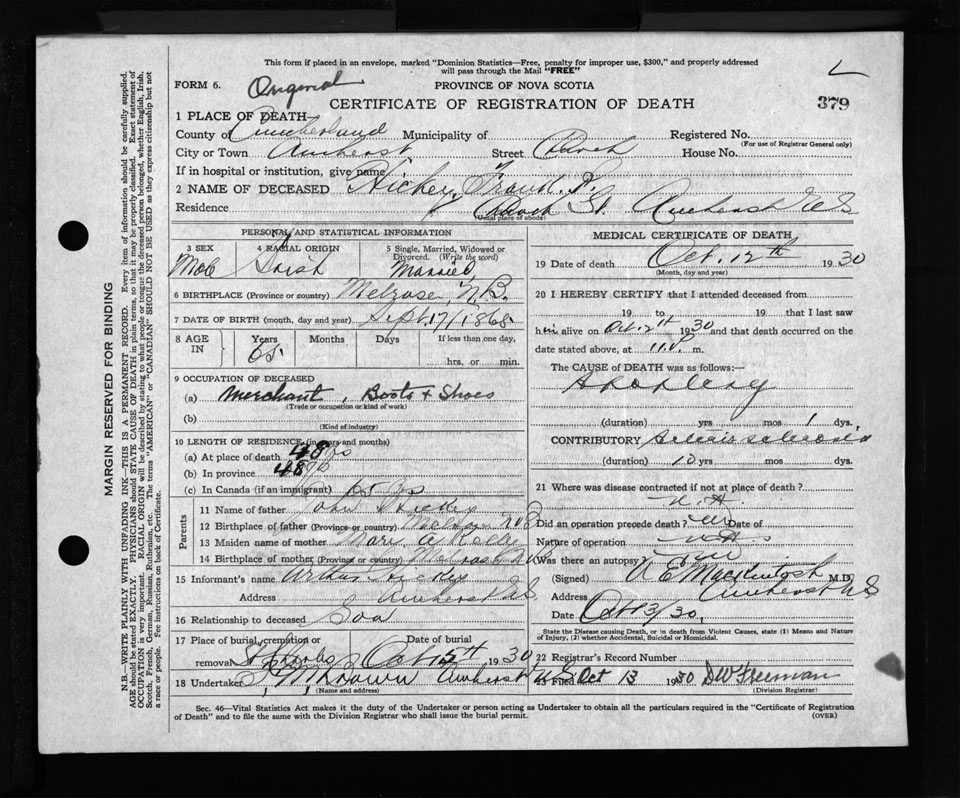 This form if placed in an envelope, marked "Dominion Statistics—Free, penalty for improper use, $300," and properly addressed
will pass through the Mail "FREE"
FORM 6. Original PROVINCE OF NOVA SCOTIA
CERTIFICATE OF REGISTRATION OF DEATH 379
1 PLACE OF DEATH
County of Cumberland Municipality of Registered No.
(For use of Registrar General only)
City or Town Amherst Street Church House No.
If in hospital or institution, give name
2 NAME OF DECEASED Hickey, Frank. P.
Residence Church St. Amherst N S
(Usual place of abode)
PERSONAL AND STATISTICAL INFORMATION
3 SEX 4 RACIAL ORIGIN 5 Single, Married, Widowed or
Divorced. (Write the word)
Male Irish Married
6 BIRTHPLACE (Province or country) Melrose N.B.
7 DATE OF BIRTH (month, day and year) Sept 17/1865
8 AGE IN Years Months Days If less than one day,
65 hrs, or min.
9 OCCUPATION OF DECEASED
(a) Merchant, Boots & Shoes
(Trade or occupation or kind of work)
(b)
(Kind of industry)
10 LENGTH OF RESIDENCE (in years and months)
(a) At place of death 48 yrs
(b) In province 48 yrs
(c) In Canada (if an immigrant)
Parents
11 Name of father John Hickey
12 Birthplace of father (Province or country) Melrose N B
13 Maiden name of mother Mary A Kelly
14 Birthplace of mother (Province or country) Melrose N.B
15 Informant's name Arthur Hickey
Address Amherst N S
16 Relationship to deceased Son
17 Place of burial, cremation or Date of burial
removal Oct 15th 1930
18 Undertaker Brown Amherst N S
(Name and address)
MEDICAL CERTIFICATE OF DEATH
19 Date of death Oct. 12th 1930
(Month, day and year)
20 I HEREBY CERTIFY that I attended deceased from
19 to 19 that I last saw
him alive on Oct. 12th 1930 and that death occurred on the
date stated above, at 11 P. m.
The CAUSE of DEATH was as follows:
Apoplexy
(duration) yrs mos 1 dys.
CONTRIBUTORY Arterio sclerosis
(duration) 10 yrs mos dys.
21 Where was disease contracted if not at place of death?
Did an operation precede death? no Date of
Nature of operation
Was there an autopsy? no
(Signed) A E Mackintosh M.D.
Address Amherst N S
Date Oct 13/30
State the Disease causing Death, or in death from Violent Causes, state (1) Means and Nature
of Injury, (2) whether Accidental, Suicidal or Homicidal.
22 Registrar's Record Number
23 Filed Oct 13 1930 DW Freeman
(Division Registrar)
Sec. 46—Vital Statistics Act makes it the duty of the Undertaker or person acting as Undertaker to obtain all the particulars required in the "Certificate of Registration
of Death" and to file the same with the Division Registrar who shall issue the burial permit. (OVER)
MARGIN RESERVED FOR BINDING
N.B.—WRITE PLAINLY WITH UNFADING INK—THIS IS A PERMANENT RECORD. Every item of information should be carefully supplied.
AGE should be stated EXACTLY. PHYSICIANS should STATE CAUSE OF DEATH in plain terms, so that it may be properly classified. Exact statement of
OCCUPATION is very important. RACIAL ORIGIN will be described by stating to what people or tongue the deceased person belonged, whether English, Irish,
Scotch, French, German, Russian, Ruthenian, etc. The terms "AMERICAN" or "CANADIAN" SHOULD NOT BE USED as they express citizenship but not
a race or people. Fee instructions on back of Certificate.